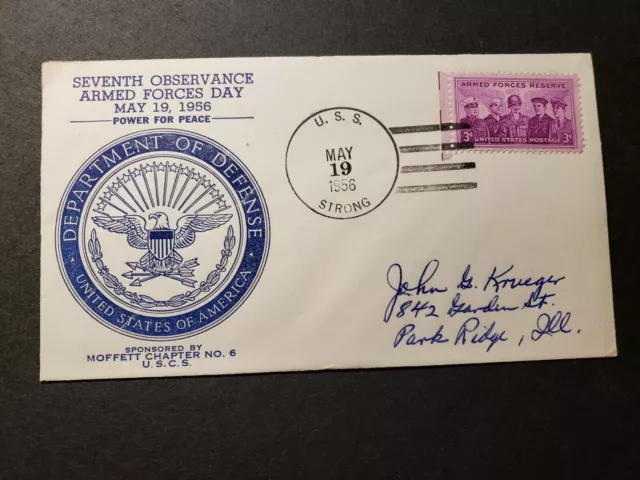 SEVENTH OBSERVANCE
ARMED FORCES DAY
MAY 19, 1956
POWER FOR PEACE
DEPARTMENT OF DEFENSE
UNITED STATES OF AMERICA
SPONSORED BY
MOFFETT CHAPTER NO. 6
U.S.C.S.
U.S.S.
MAY
19
1956
STRONG
ARMED FORCES RESERVE
3¢ 3¢
UNITED STATES POSTAGE
John G. Krueger
842 Garden St.
Park Ridge, Ill.